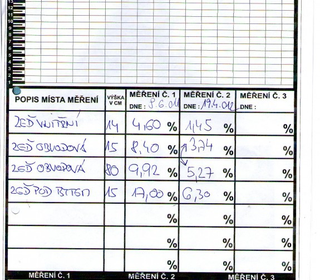 POPIS MÍSTA MĚŘENÍ VÝŠKA V CM MĚŘENÍ Č. 1 DNE: MĚŘENÍ Č. 2 DNE: MĚŘENÍ Č. 3 DNE:
ZEĎ VNITŘNÍ 14 4,60 % 1,45 % %
ZEĎ OBVODOVÁ 15 8,40 % 3,74 % %
ZEĎ OBVODOVÁ 80 9,92 % 5,27 % %
ZEĎ POD 15 17,00 % 6,30 % %
% % %
% % %
% % %
MĚŘENÍ Č.1 MĚŘENÍ Č. 2 MĚŘENÍ Č. 3